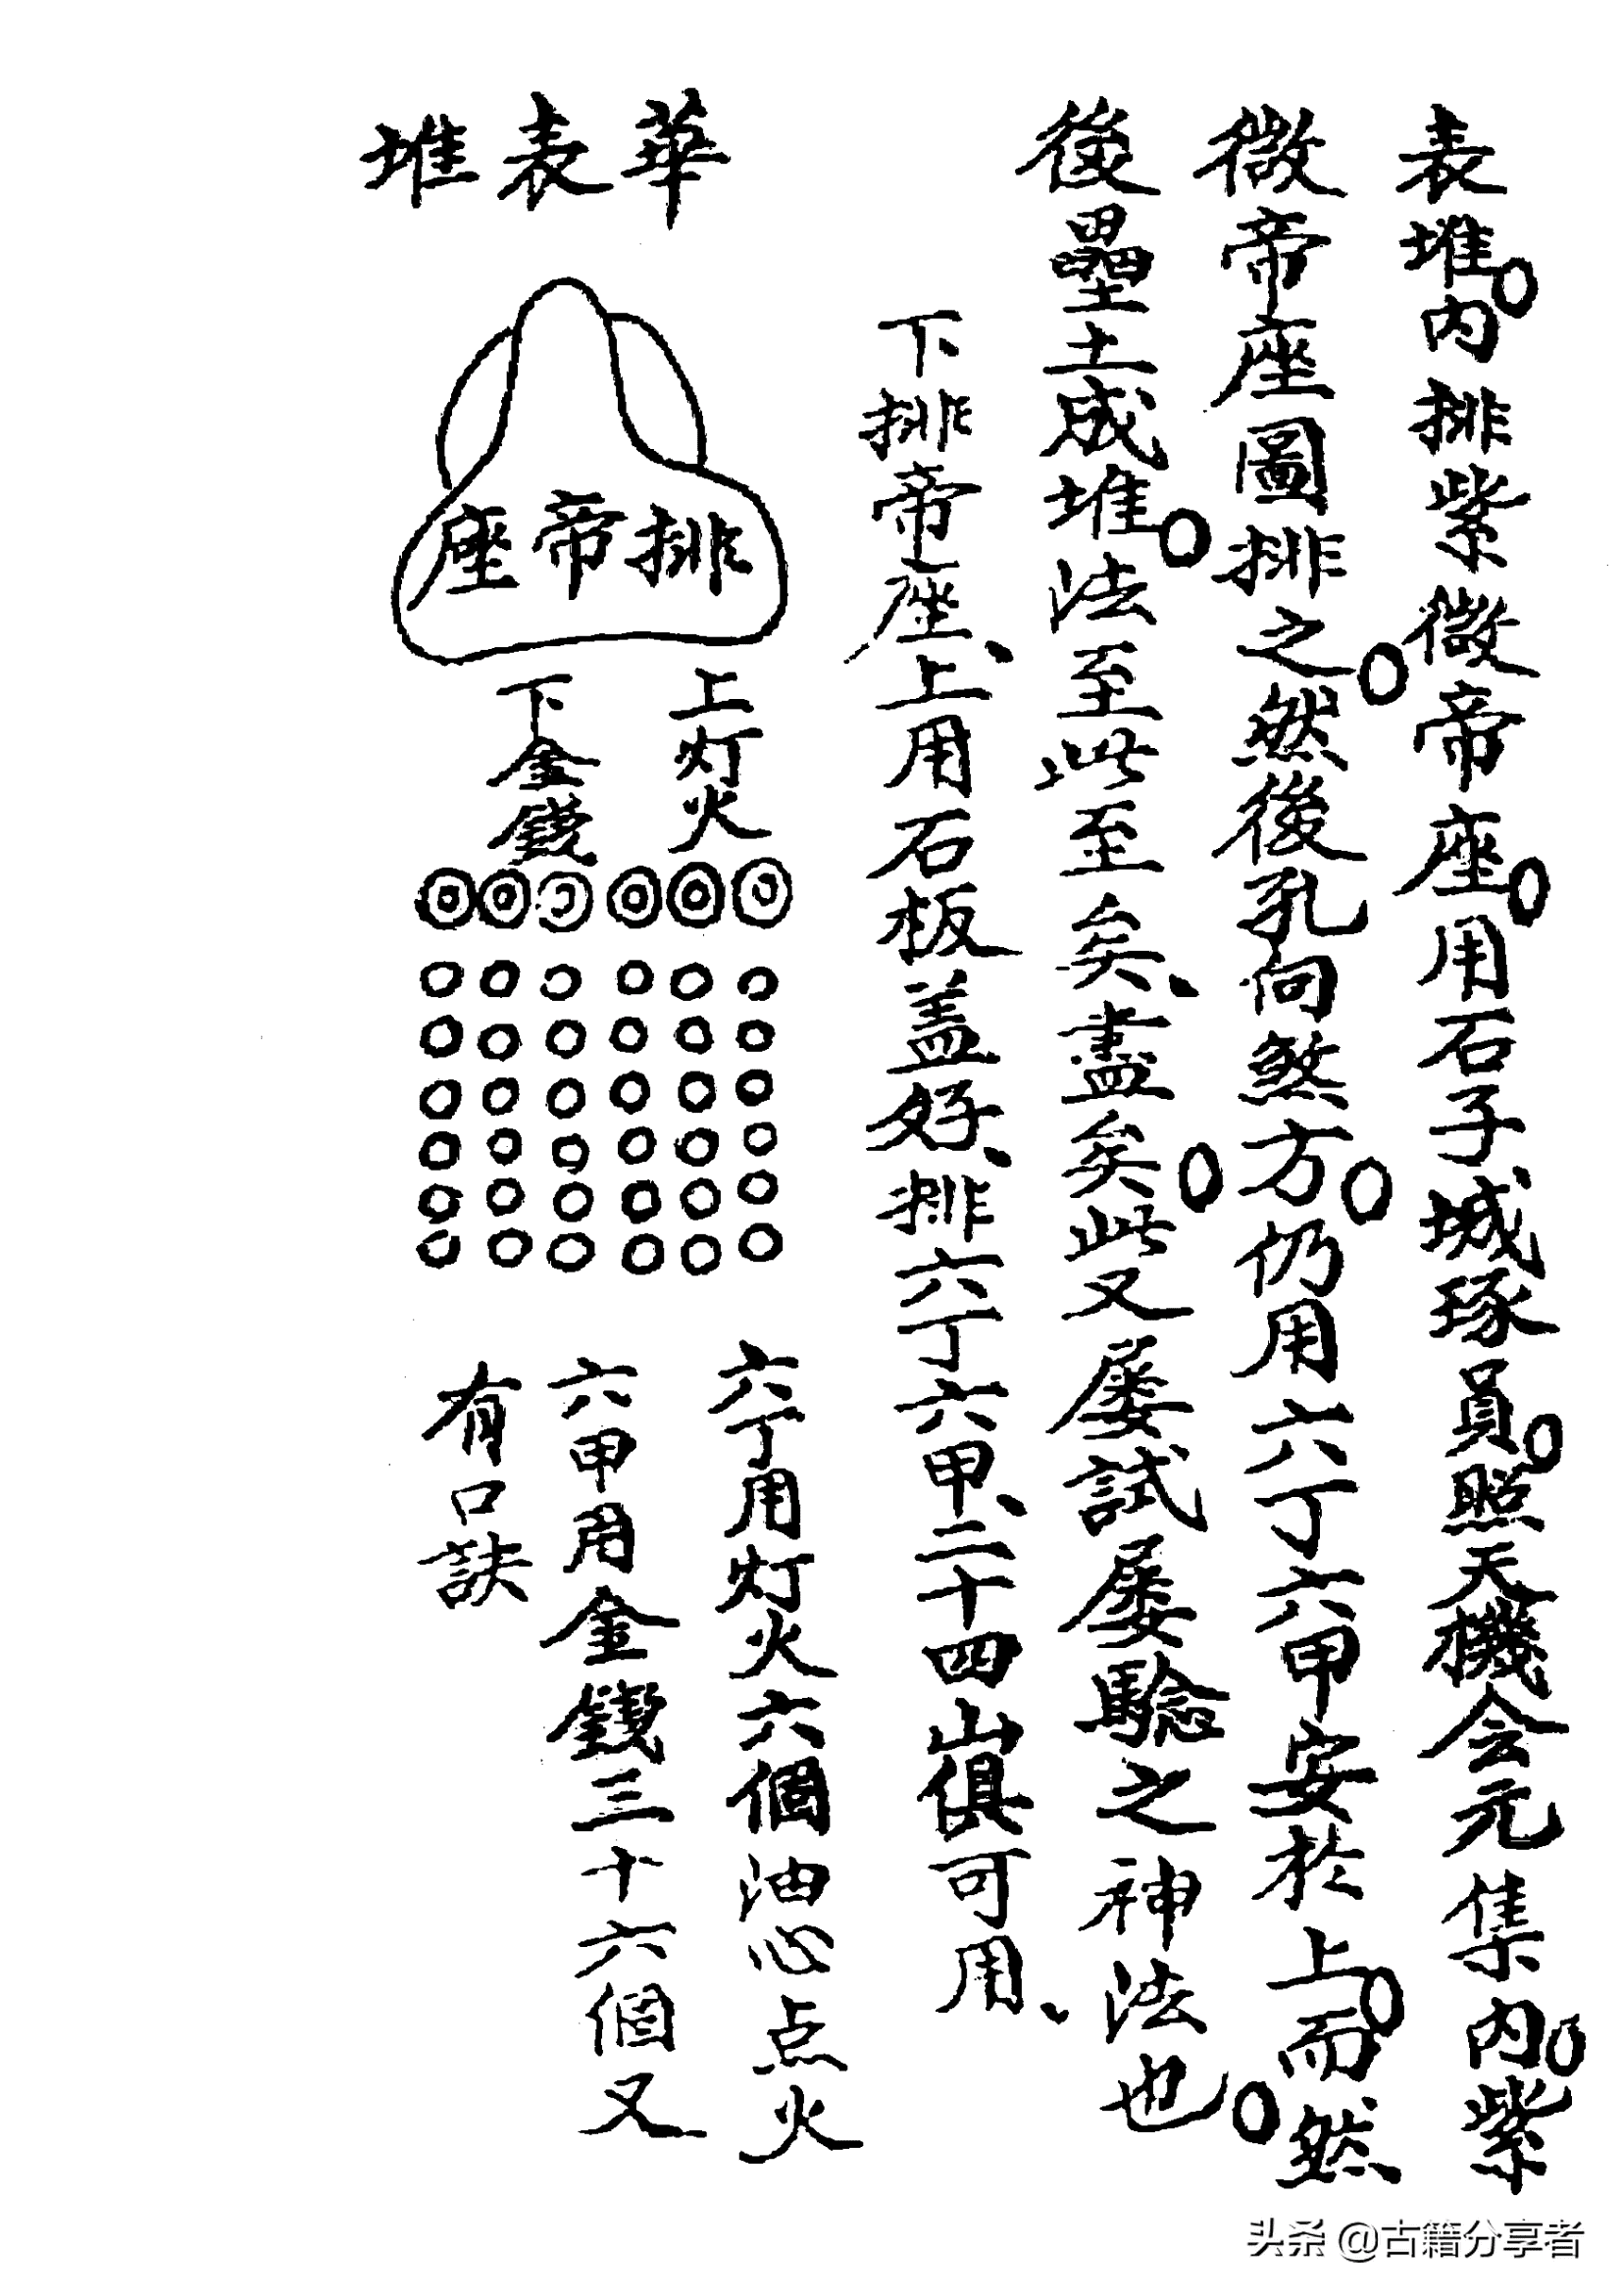 表堆。内排紫微帝座。用石子城琢員。照天機会元集内。紫
微帝座圖排之。然後孔向煞方。仍用六丁六甲安於上。而然
後壘土成堆。法至此至矣、盡矣。此又屡試屡驗之神法也。
下排帝座、上用石板盖好、排六丁六甲、二十四山俱可用、
華表堆
排帝座
上灯火
下金錢
六丁用灯火六個油心点火
六甲用金錢三十六個又
有口訣
头条 @古籍分享者